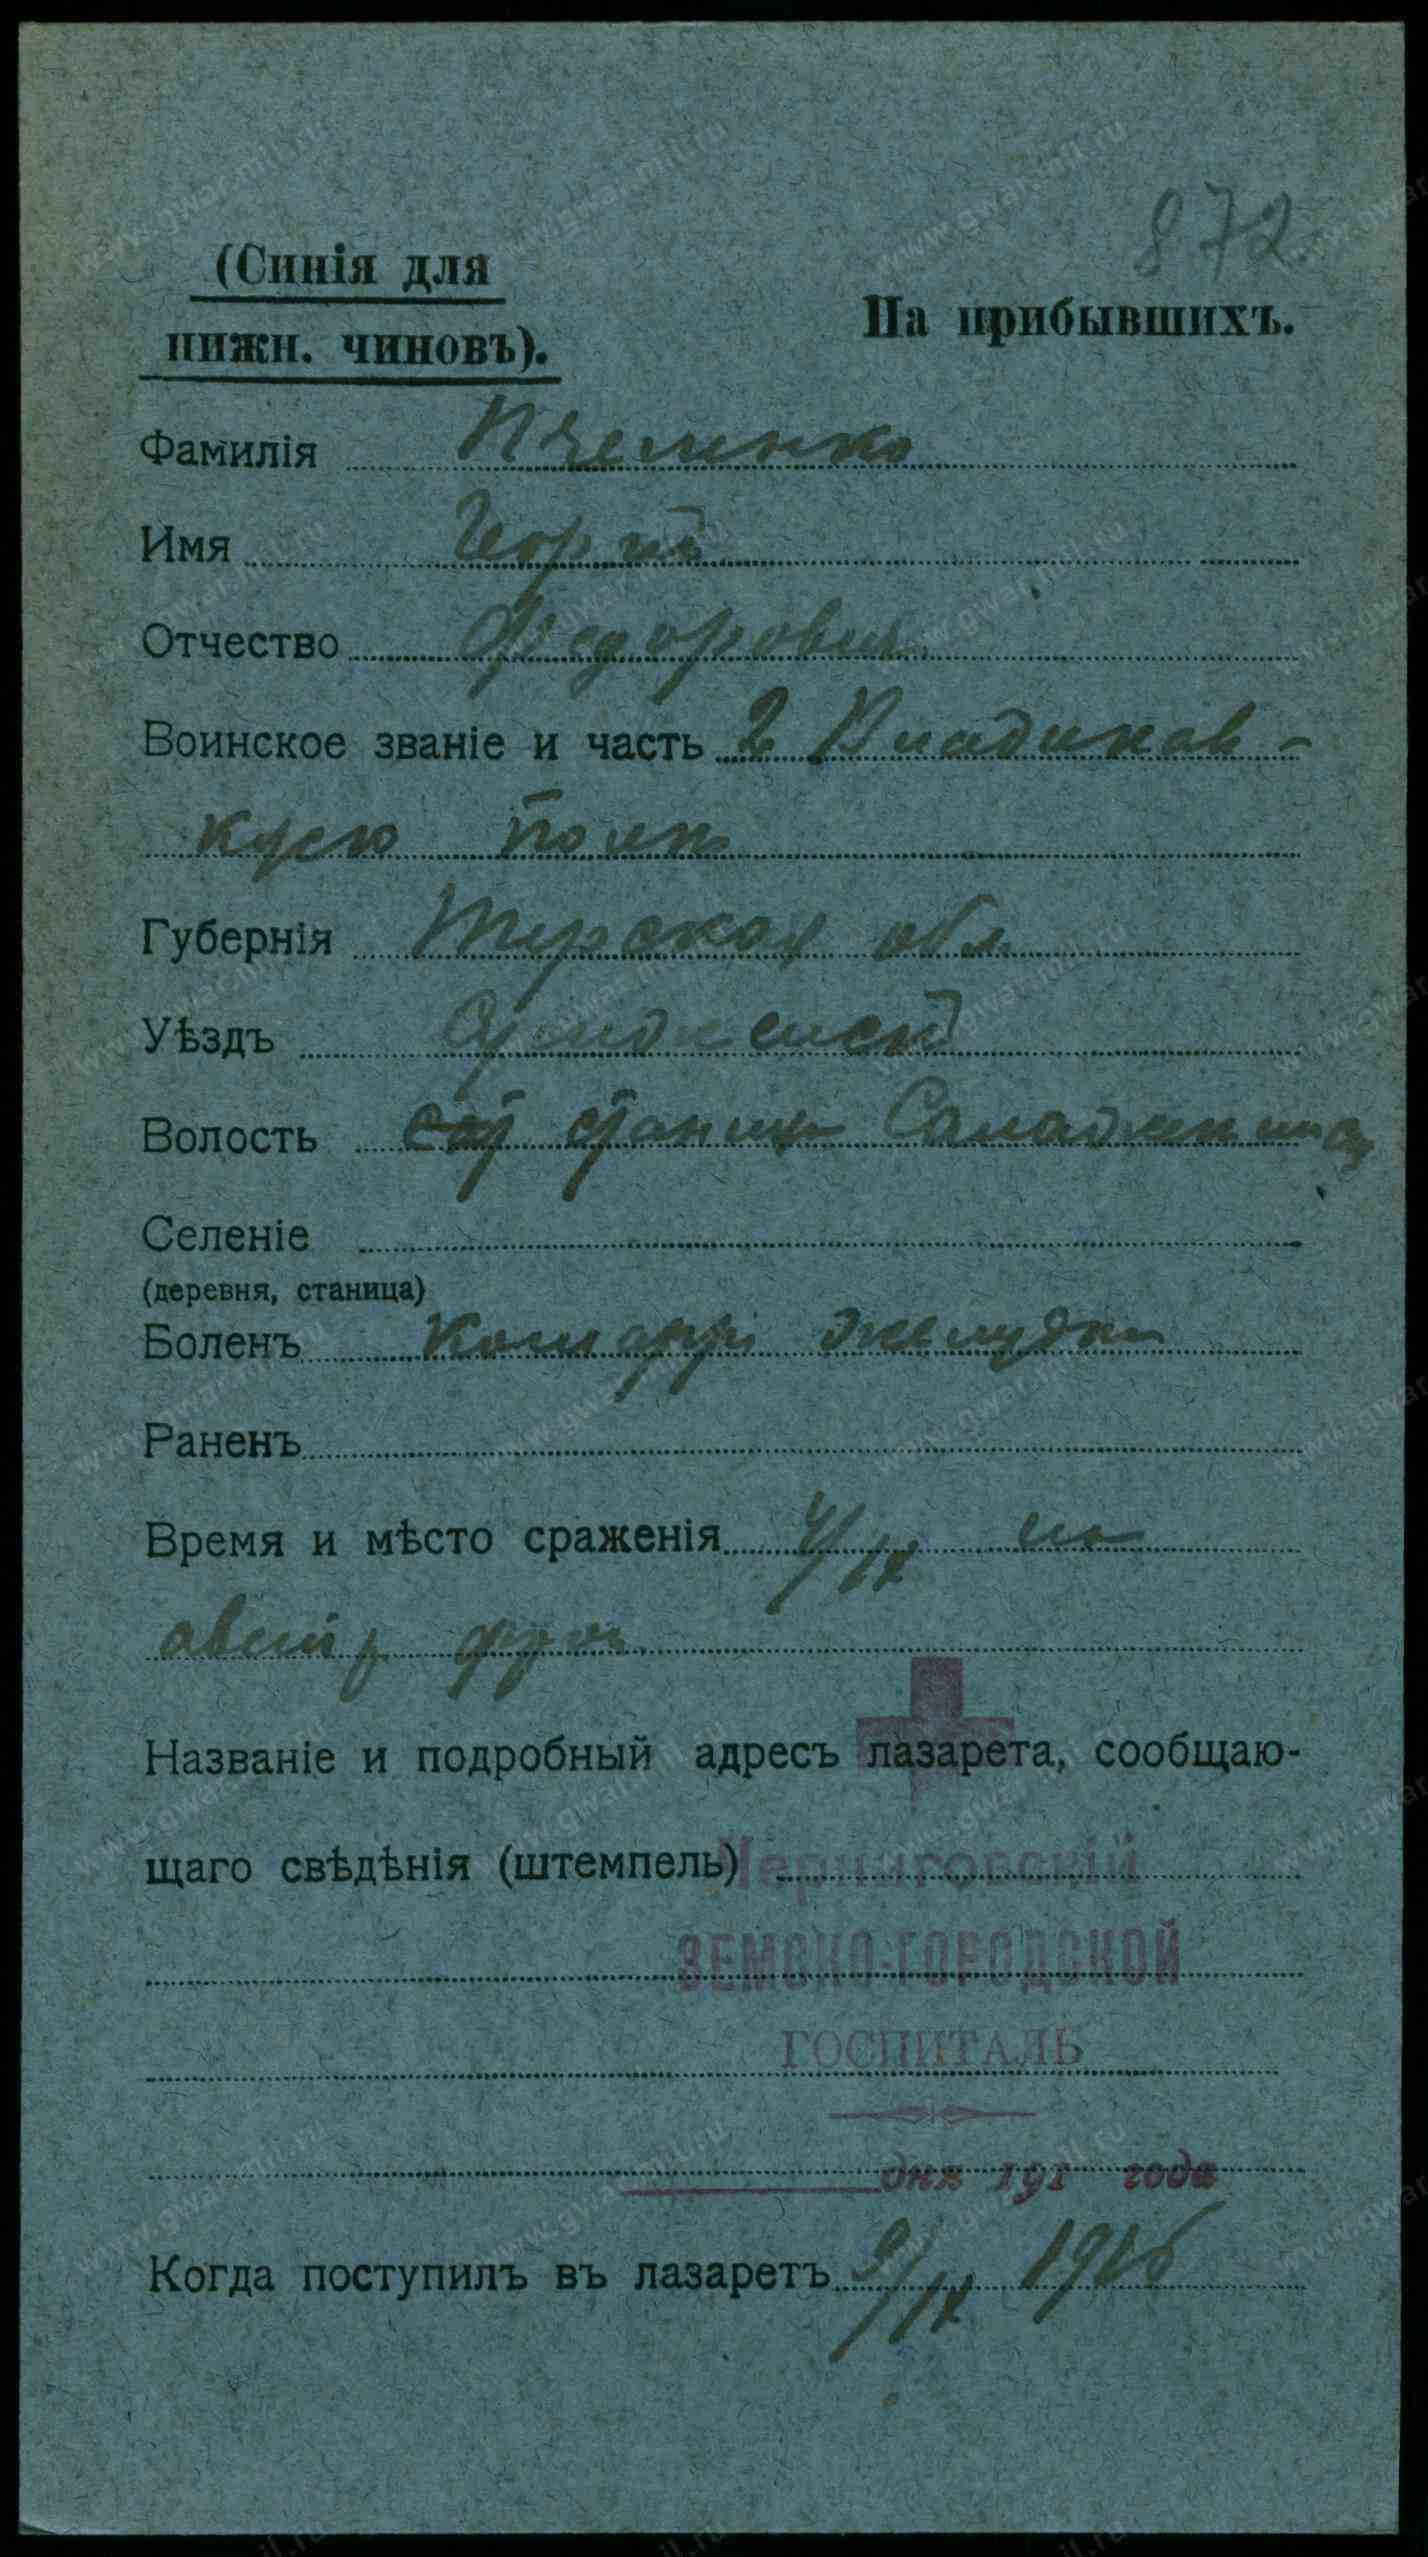 872
(Синія для
нижн. чиновъ).
На прибывшихъ.
Фамилія Пчеленко
Имя Георгій
Отчество Федорович
Воинское званіе и часть 2 Владикав-
полк
Губернія Терская обл.
Уѣздъ
Волость станица
Селеніе
(деревня, станица)
Боленъ желудка
Раненъ
Время и мѣсто сраженія 4/IX на
австр фрон
Названіе и подробный адресъ лазарета, сообщаю-
щаго свѣдѣнія (штемпель)
Черниговскій
ЗЕМСКО-ГОРОДСКОЙ
ГОСПИТАЛЬ
дня 191 года
Когда поступилъ въ лазаретъ 9/IX 1916